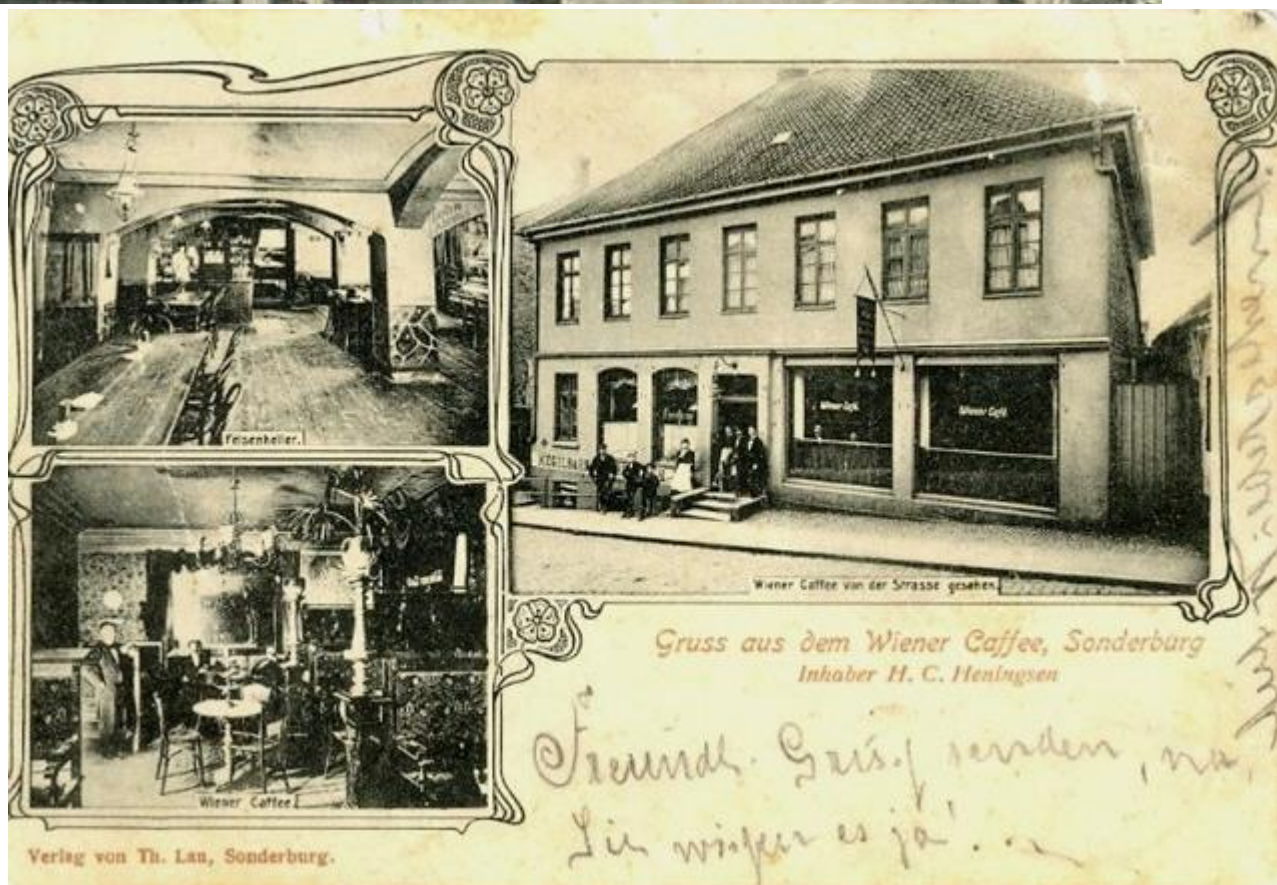 Felsenkeller.
KEGELBAHN
Wiener Café
Wiener Café
Wiener Caffee von der Strasse gesehen.
Wiener Caffee.
Gruss aus dem Wiener Caffee, Sonderburg
Inhaber H. C. Heningsen
Freundl. Gruß senden, na
Sie wißen es ja!
Verlag von Th. Lau, Sonderburg.